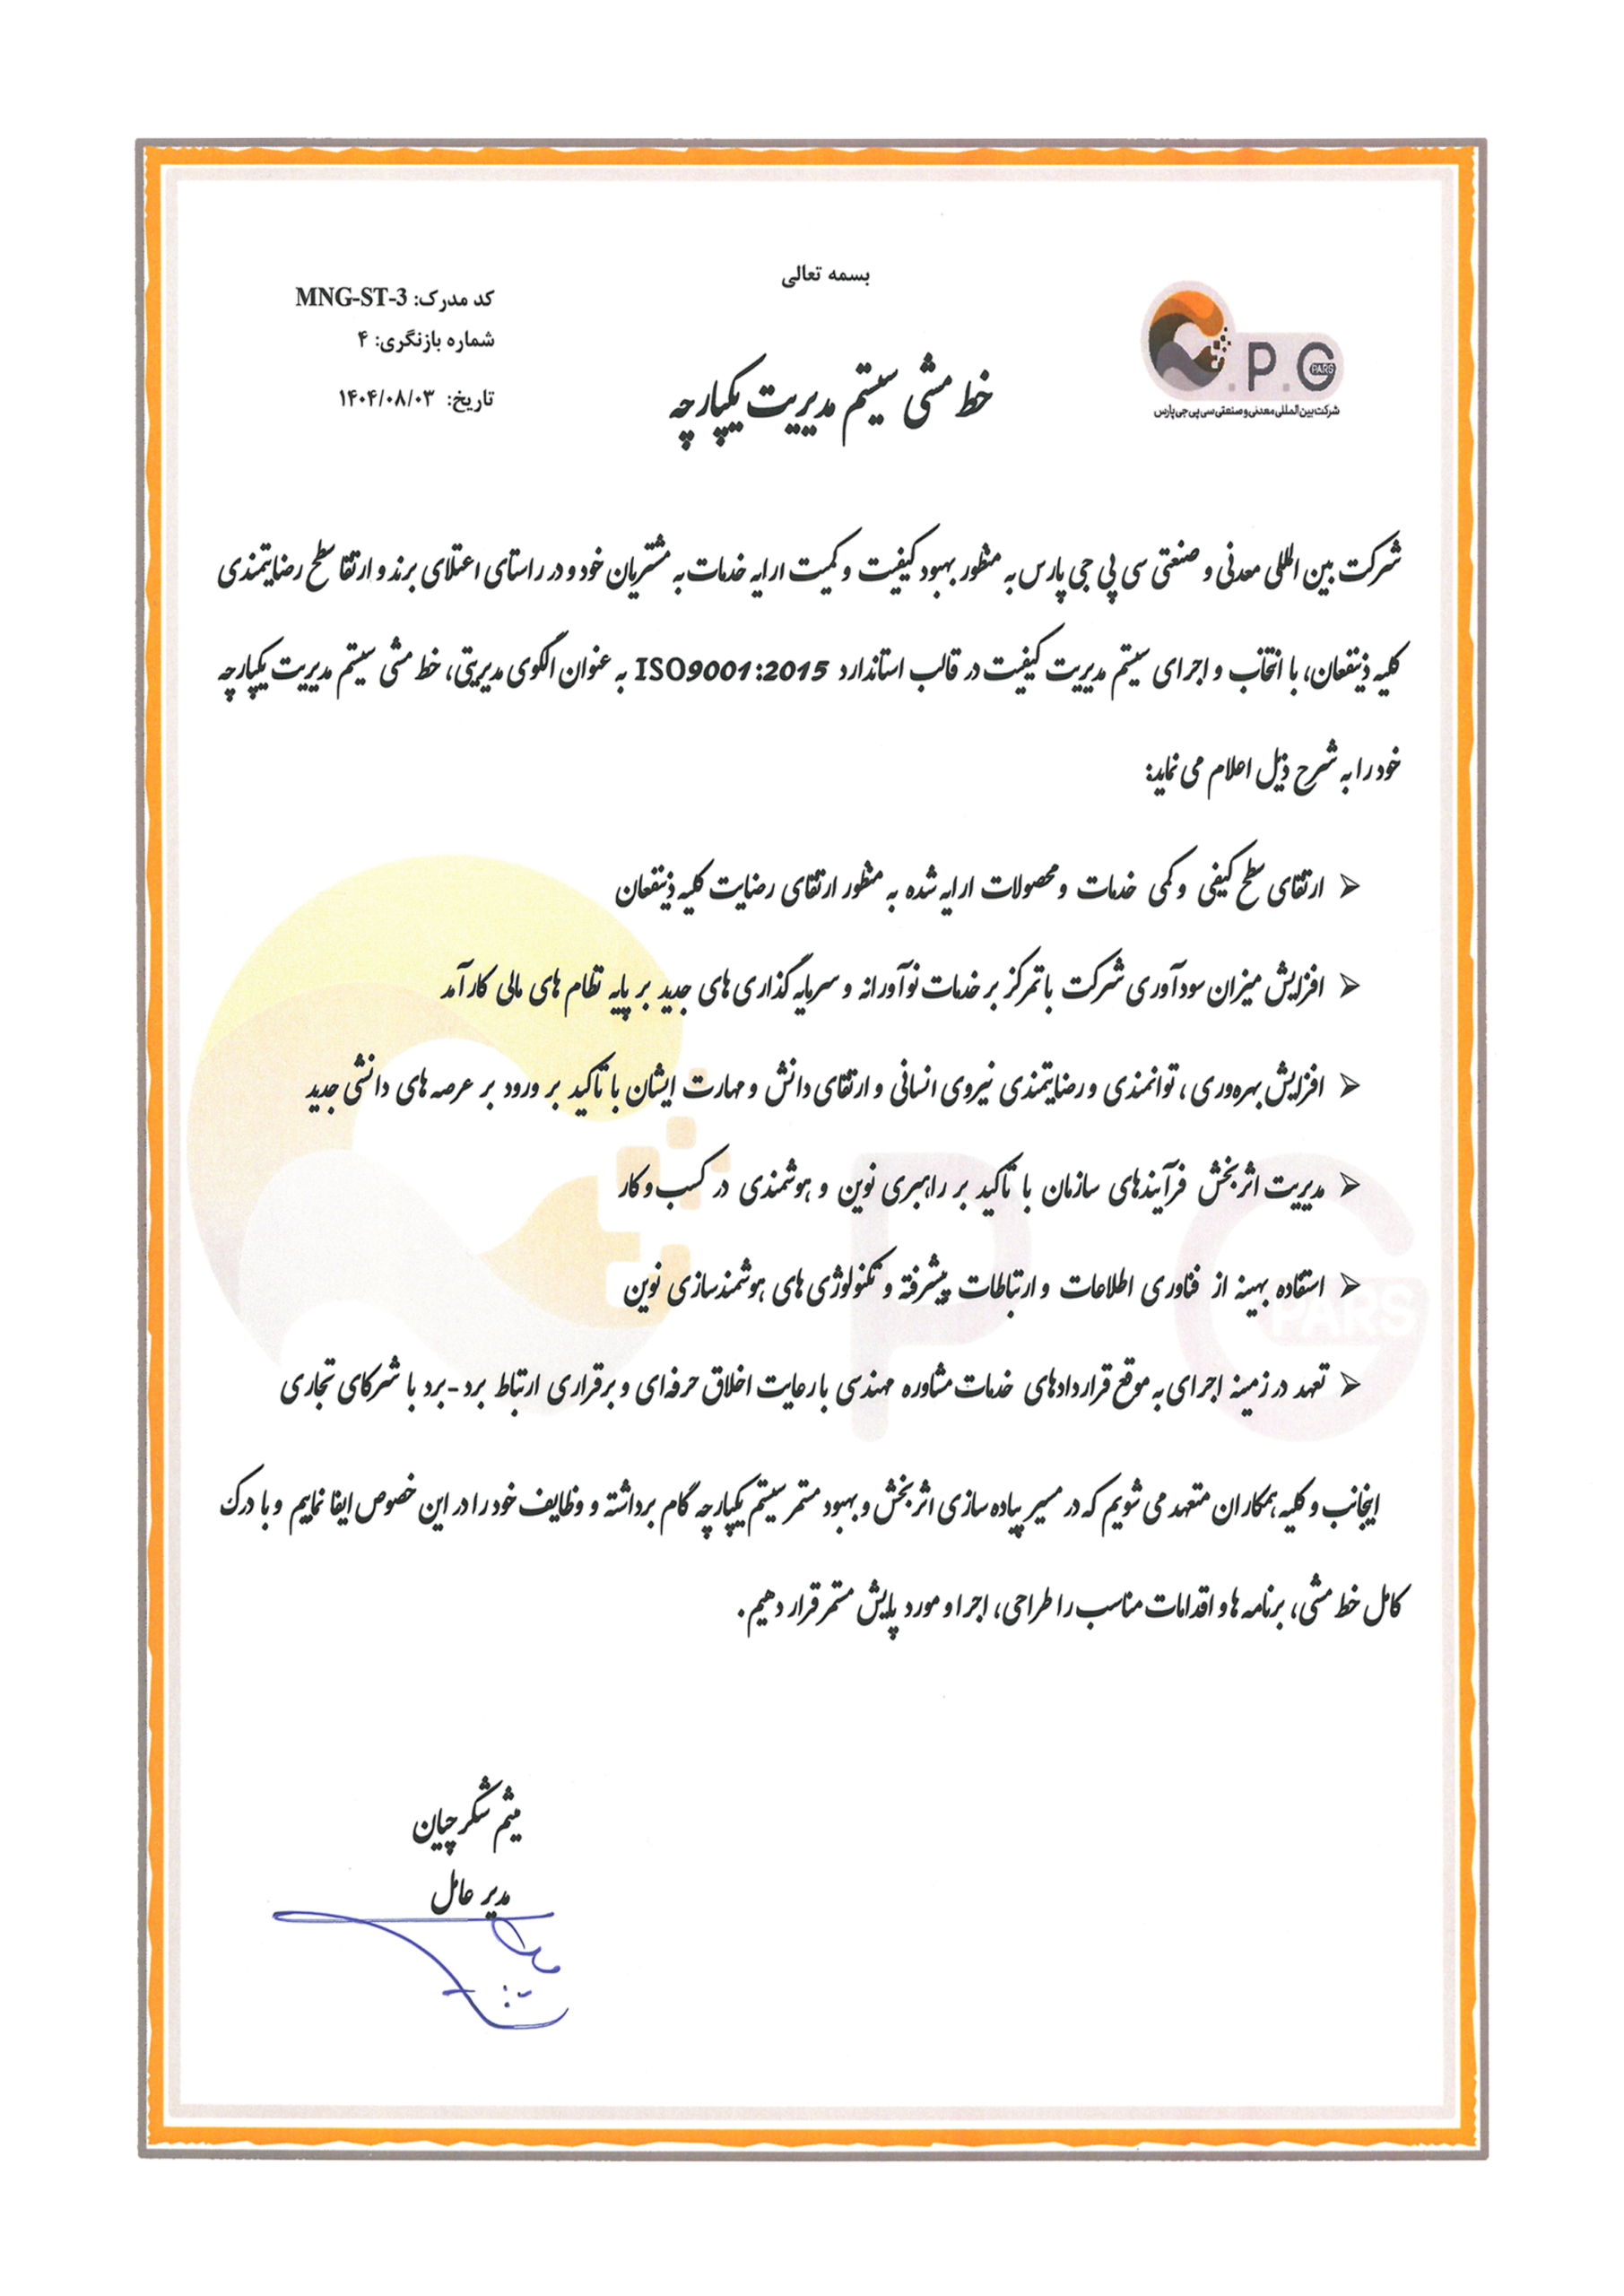 بسمه تعالی
C.P.G
PARS
شرکت بین المللی معدنی و صنعتی سی پی جی پارس
کد مدرک: MNG-ST-3
شماره بازنگری: ۴
تاریخ: ۱۴۰۴/۰۸/۰۳
خط مشی سیستم مدیریت یکپارچه
شرکت بین المللی معدنی و صنعتی سی پی جی پارس به منظور بهبود کیفیت و کمیت ارایه خدمات به مشتریان خود و در راستای اعتلای برند و ارتقا سطح رضایتمندی
کلیه ذینفعان، با انتخاب و اجرای سیستم مدیریت کیفیت در قالب استاندارد ISO9001:2015 به عنوان الگوی مدیریتی، خط مشی سیستم مدیریت یکپارچه
خود را به شرح ذیل اعلام می نماید:
➢ ارتقای سطح کیفی و کمی خدمات و محصولات ارایه شده به منظور ارتقای رضایت کلیه ذینفعان
➢ افزایش میزان سودآوری شرکت با تمرکز بر خدمات نوآورانه و سرمایه گذاری های جدید بر پایه نظام های مالی کارآمد
➢ افزایش بهره‌وری، توانمندی و رضایتمندی نیروی انسانی و ارتقای دانش و مهارت ایشان با تاکید بر ورود بر عرصه های دانشی جدید
➢ مدیریت اثربخش فرآیندهای سازمان با تاکید بر راهبری نوین و هوشمندی در کسب و کار
➢ استفاده بهینه از فناوری اطلاعات و ارتباطات پیشرفته و تکنولوژی های هوشمندسازی نوین
➢ تعهد در زمینه اجرای به موقع قراردادهای خدمات مشاوره مهندسی با رعایت اخلاق حرفه‌ای و برقراری ارتباط برد-برد با شرکای تجاری
اینجانب و کلیه همکاران متعهد می شویم که در مسیر پیاده سازی اثربخش و بهبود مستمر سیستم یکپارچه گام برداشته و وظایف خود را در این خصوص ایفا نماییم و با درک
کامل خط مشی، برنامه ها و اقدامات مناسب را طراحی، اجرا و مورد پایش مستمر قرار دهیم.
میثم شکرچیان
مدیر عامل